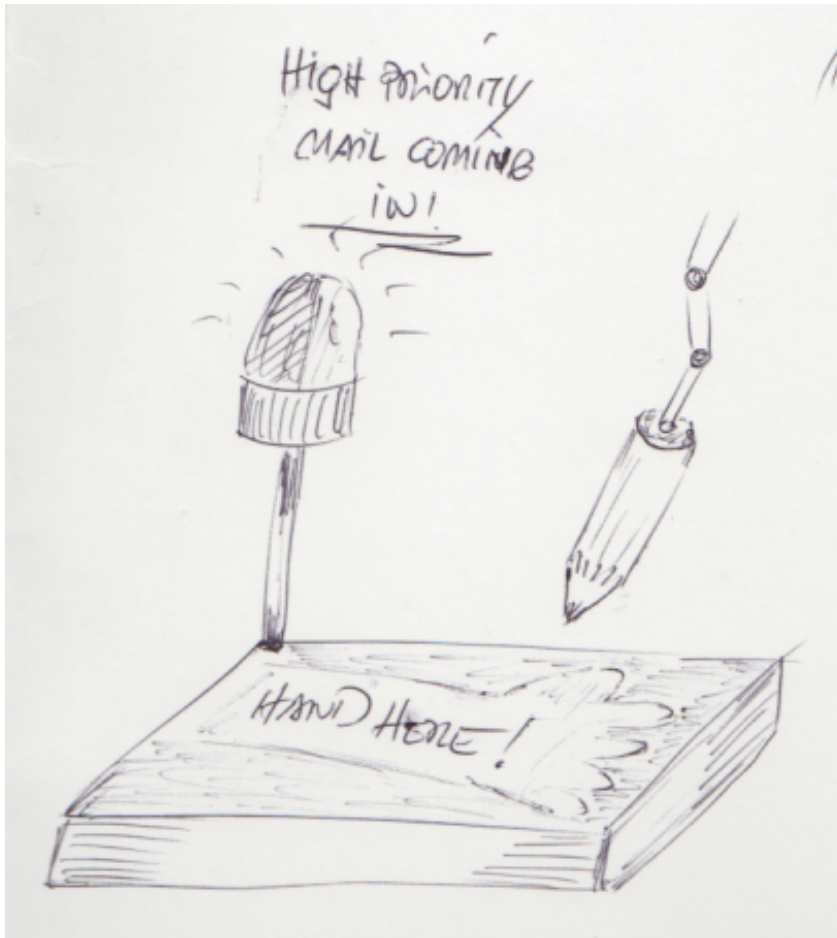 HIGH PRIORITY
MAIL COMING
IN!
HAND HERE!